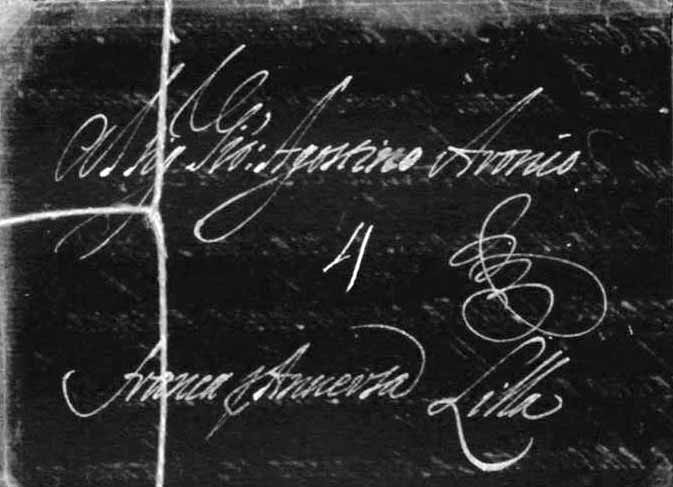 Al Sig Gio: Agostino Aronio
4
franca p Anuersa Lilla